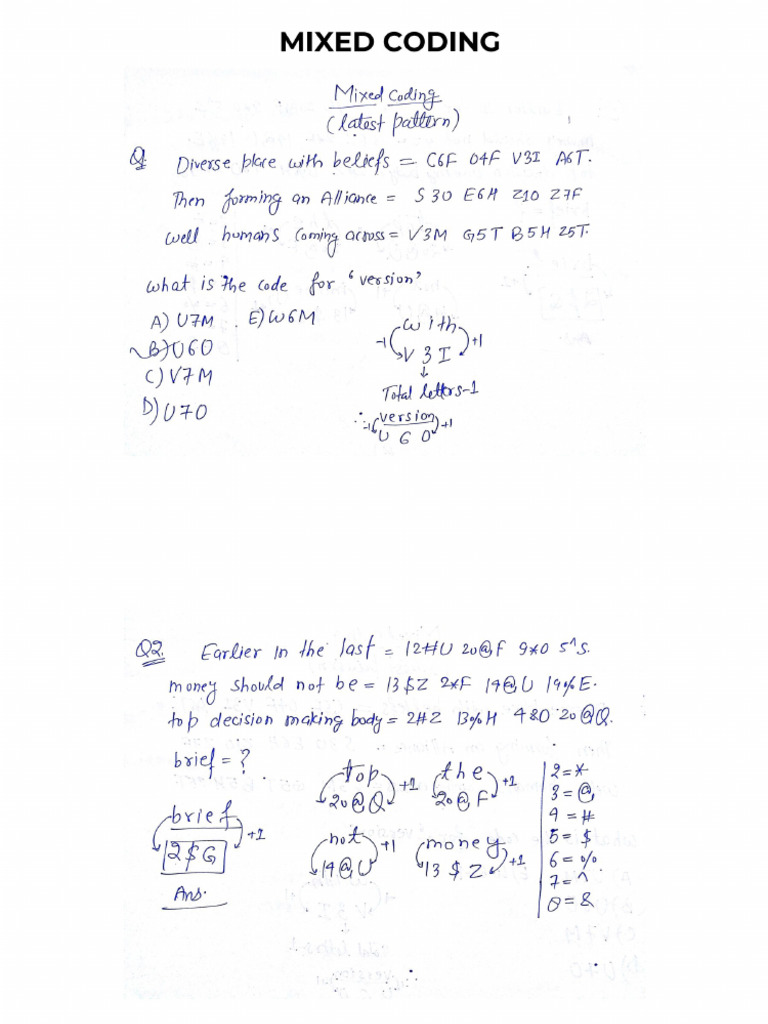 MIXED CODING
Mixed Coding
(latest pattern)
Q. Diverse place with beliefs = C6F O4F V3I A6T.
Then forming an Alliance = S3O E6H Z1O Z7F
Well humans Coming across = V3M G5T B5H Z5T.
What is the code for 'version'?
A) U7M E) W6M
B) U6O
C) V7M
D) U7O
with
-1 +1
V 3 I
↓
Total letters-1
∴ version
-1 +1
U 6 O
Q2. Earlier in the last = 12#U 20@F 9*O 5^S.
money should not be = 13$Z 2*F 14@U 19%E.
top decision making body = 2#Z 13%H 4&O 20@Q.
brief = ?
top +1
20@Q
the +1
20@F
brief +1
12$G
Ans.
not +1
14@U
money +1
13$Z
2=*
3=@
4=#
5=$
6=%
7=^
8=&